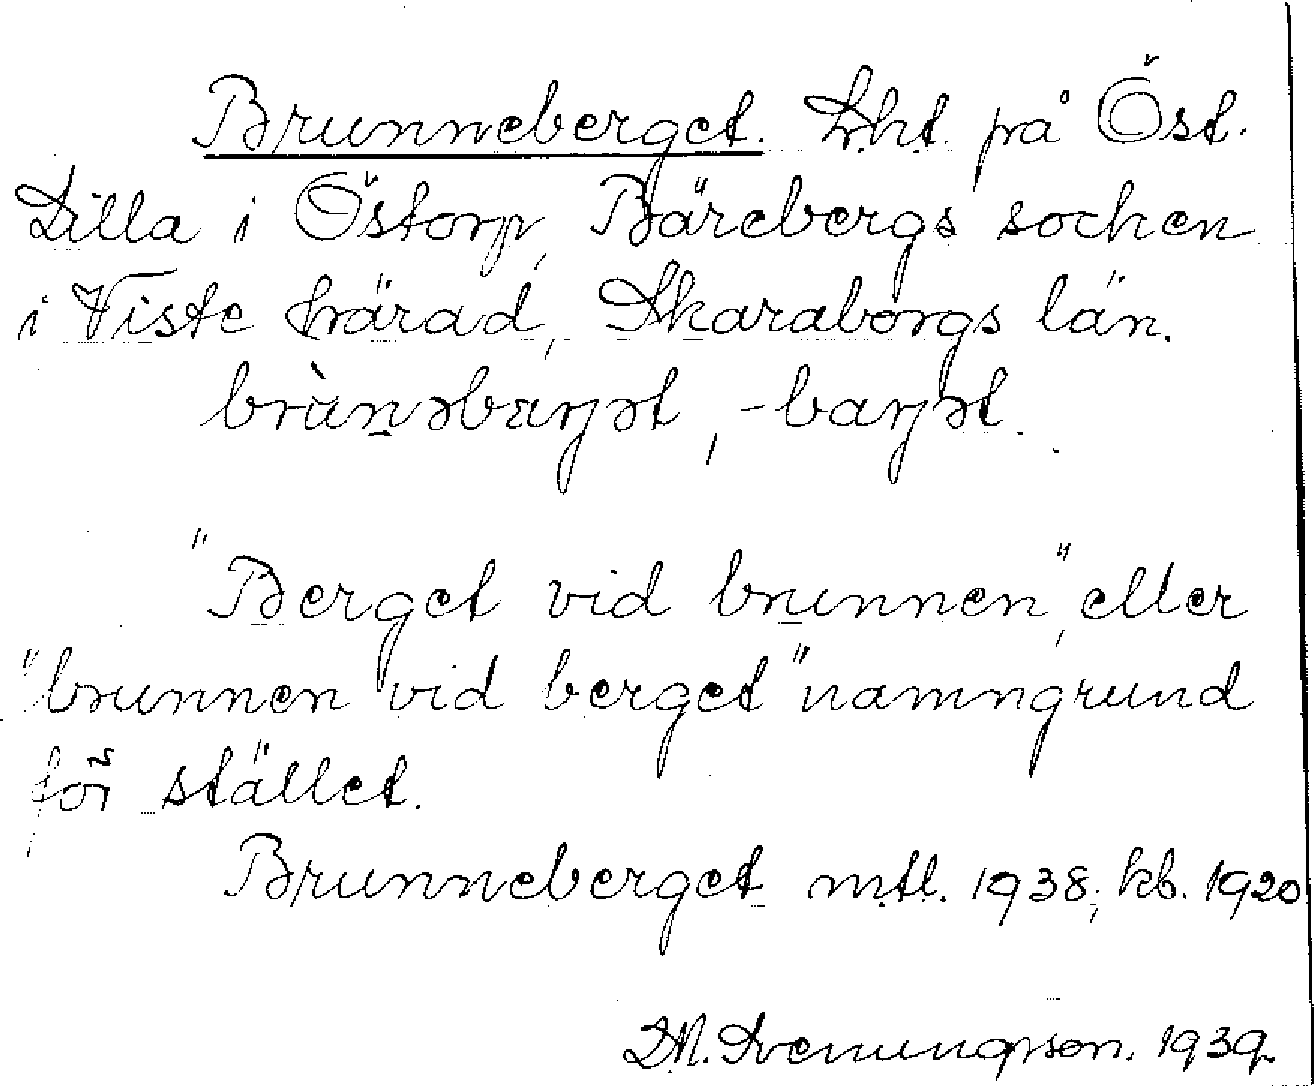 Brunneberget. Lht. på Öst.
Lilla i Östorp, Bärebergs socken
i Viste härad, Skaraborgs län.
brùnəbarjət, -barjət.
"Berget vid brunnen", eller
"brunnen vid berget" namngrund
för stället.
Brunneberget mtl. 1938; kb. 1920
Svenungsson. 1939